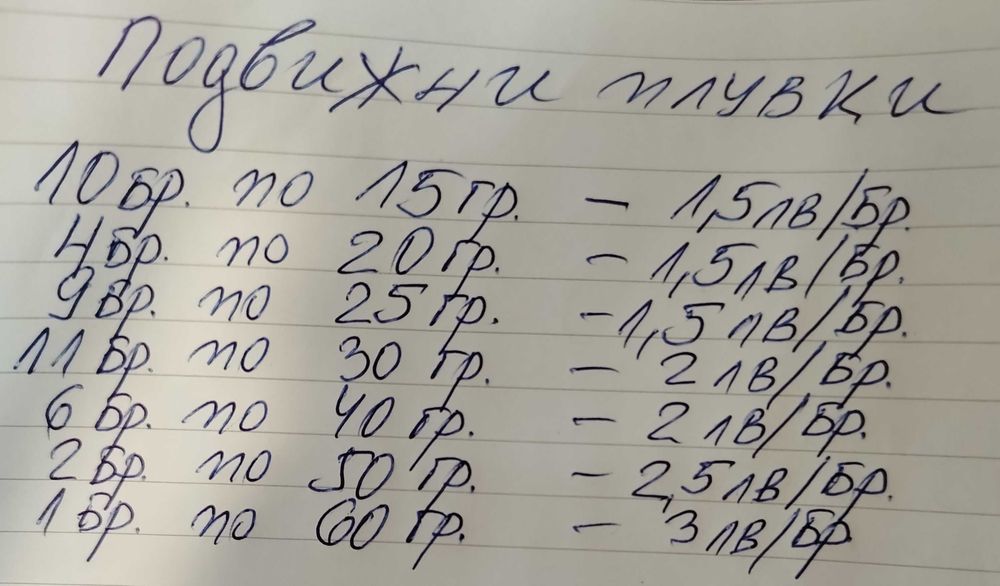 Подвижни плувки
10бр. по 15гр. - 1,5лв/бр.
4бр. по 20гр. - 1,5лв/бр.
9бр. по 25гр. - 1,5лв/бр.
11бр. по 30гр. - 2лв/бр.
6бр. по 40гр. - 2лв/бр.
2бр. по 50гр. - 2,5лв/бр.
1бр. по 60гр. - 3лв/бр.